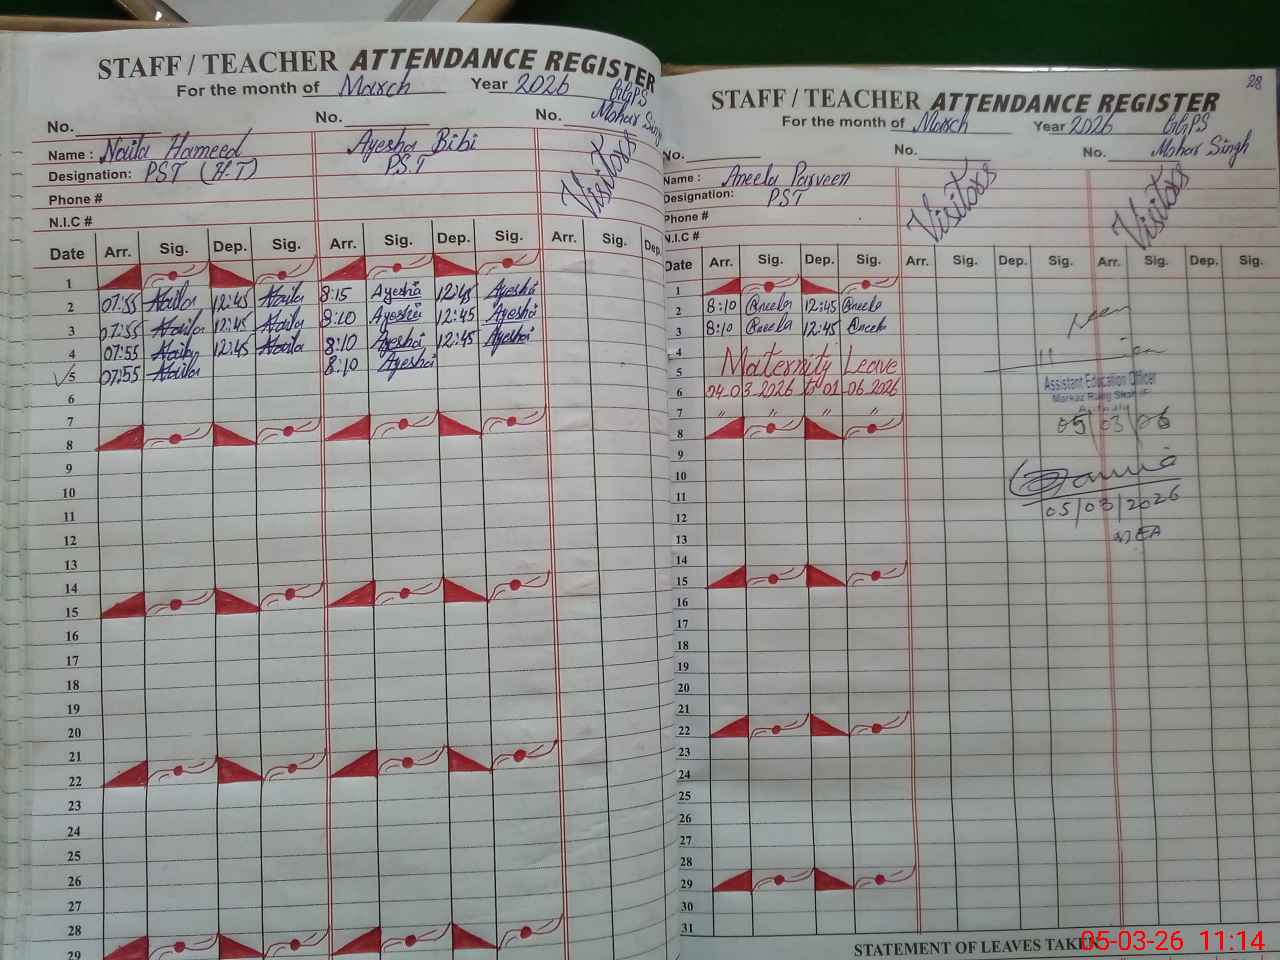 STAFF / TEACHER ATTENDANCE REGISTER
For the month of March Year 2026
GGPS
Mohar Singh
No. No. No.
Name : Naila Hameed Ayesha Bibi
Designation: PST (H.T) PST
Visitors
Phone #
N.I.C #
Date Arr. Sig. Dep. Sig. Arr. Sig. Dep. Sig. Arr. Sig. Dep
1
2 07:55 Naila 12:45 Naila 8:15 Ayesha 12:45 Ayesha
3 07:55 Naila 12:45 Naila 8:10 Ayesha 12:45 Ayesha
4 07:55 Naila 12:45 Naila 8:10 Ayesha 12:45 Ayesha
5 07:55 Naila 8:10 Ayesha
6
7
8
9
10
11
12
13
14
15
16
17
18
19
20
21
22
23
24
25
26
27
28
29
28
STAFF / TEACHER ATTENDANCE REGISTER
For the month of March Year 2026 GGPS
Mohar Singh
No. No. No.
Name : Aneela Parveen
Designation: PST
Visitors Visitors
Phone #
N.I.C #
Date Arr. Sig. Dep. Sig. Arr. Sig. Dep. Sig. Arr. Sig. Dep. Sig.
1
2 8:10 Aneela 12:45 Aneela
3 8:10 Aneela 12:45 Aneela
4
5 Maternity Leave
6 04.03.2026 to 01.06.2026
7 " " " "
Assistant Education Officer
Markaz
05/03/06
8
9
10
11
05/03/2026
12
13
14
15
16
17
18
19
20
21
22
23
24
25
26
27
28
29
30
31
STATEMENT OF LEAVES TAKEN
05-03-26 11:14